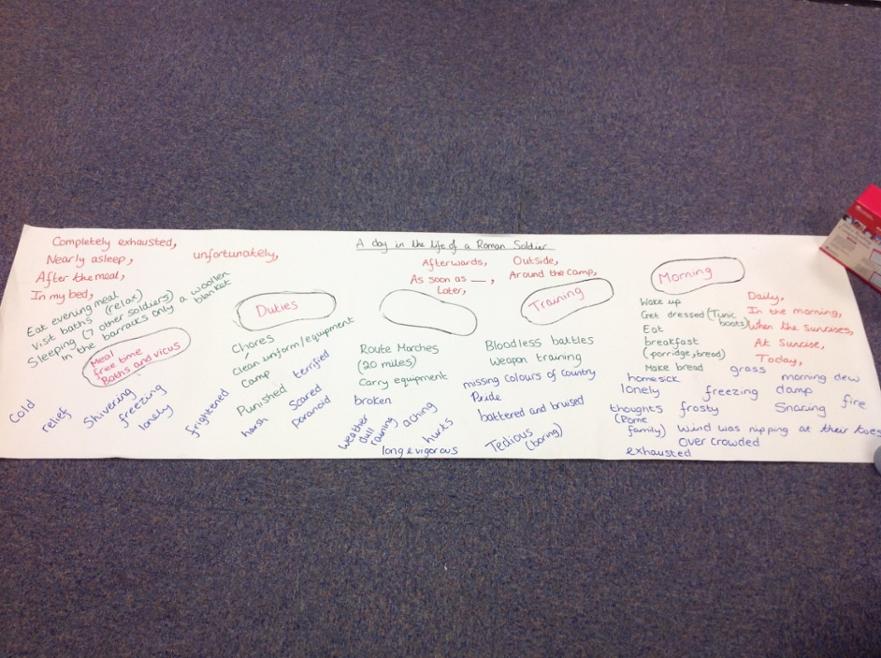 A day in the life of a Roman Soldier
Completely exhausted,
Nearly asleep,
After the meal,
In my bed,
unfortunately,
Eat evening meal
Visit baths (relax)
Sleeping (7 other soldiers)
in the barracks only a woollen
blanket
Meal
free time
Baths and vicus
Cold
relief
Shivering
freezing
lonely
Duties
Chores
Clean uniform/equipment
Camp
Punished
harsh
frightened
terrified
Scared
Paranoid
Afterwards,
As soon as __,
Later,
Outside,
Around the Camp,
Route Marches
(20 miles)
Carry equipment
broken
weather
dull
raining
aching
hurts
long & vigorous
Training
Bloodless battles
Weapon training
missing colours of country
Pride
battered and bruised
Tedious
(boring)
Morning
Wake up
Get dressed (Tunic
boots)
Eat
breakfast
(porridge, bread)
Make bread
Daily,
In the morning,
When the Sunrises,
At Sunrise,
Today,
homesick
lonely
thoughts
(Rome
family)
exhausted
grass
freezing
frosty
morning dew
damp
Snoring
fire
Wind was nipping at their toes
Over crowded